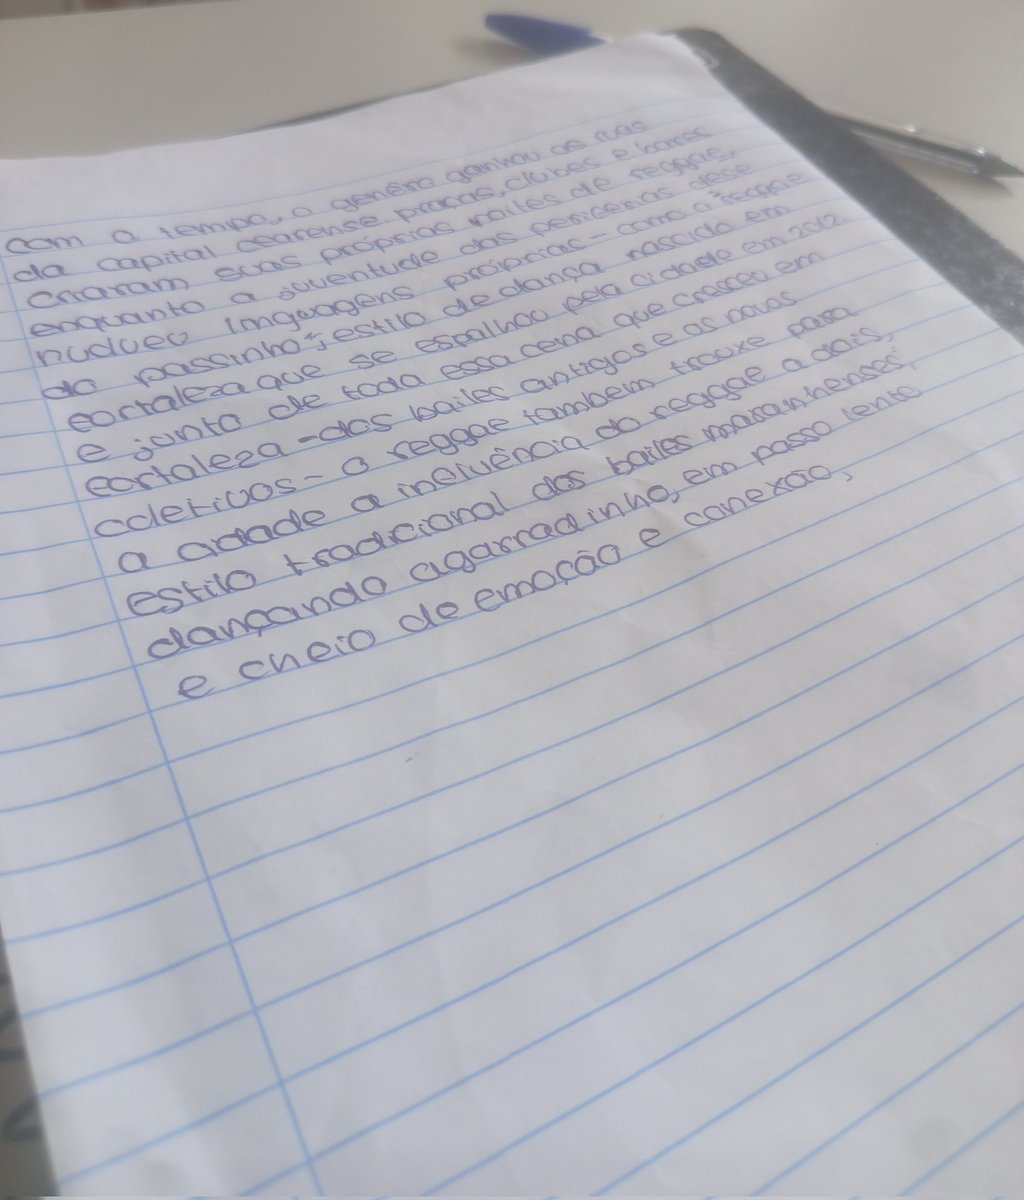 com a tempo, o genêro ganhou as ruas
da capital cearense pracas, clubes e bares
criaram suas próprias bailes de reggae,
enquanto a juventude das pericerias dese
nudueu imguagens próprias - como o "reggae
do passinho", estilo de dança nascido em
cortaleza que se espalhou pela cidade em 2012.
e junto de toda essa cena que cresceu em
cortaleza - dos bailes antigos e os novos
coletivos - o reggae tambem trouxe para
a cidade a incluência do reggae a dois,
estilo tradicional dos bailes maranhenses,
dançando agarradinho, em passo lento
e cheio de emoção e conexão,